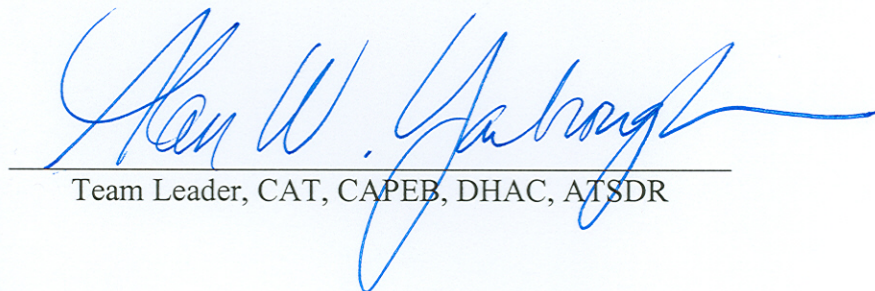 Alan W. Yarbrough
Team Leader, CAT, CAPEB, DHAC, ATSDR